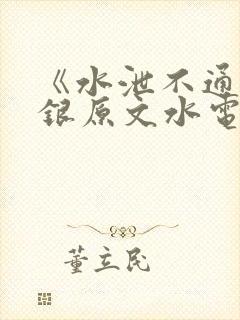 《水泄不通
银原文水電
董立民